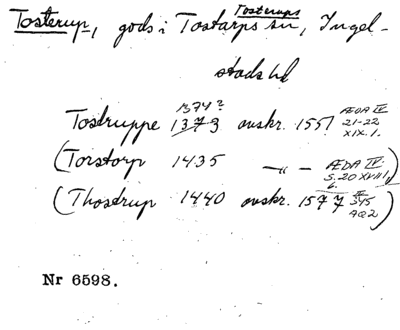 Tosterups
Tosterup, gods i Tostarps sn, Ingel-
stads hd
1374?
Tostruppe 1373 avskr. 1551 ÆDA IV
21-22
XIX.1.
(Torstorp 1435 —„— ÆDA IV
S. 20 XVIII,1)
6.
(Thostrup 1440 avskr. 1577
345
AQ2)
Nr 6598.